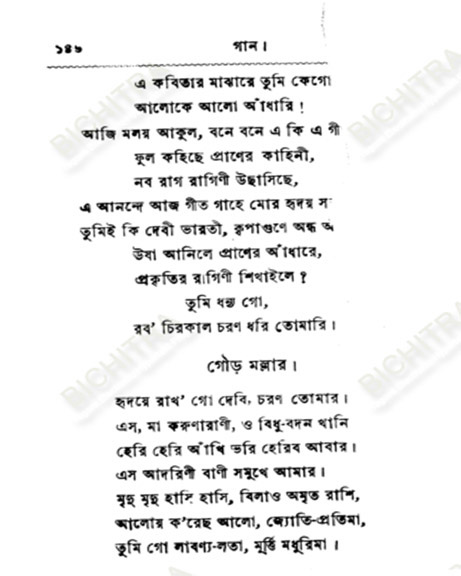 ১৪৬ গান।
এ কবিতার মাঝারে তুমি কেগো
আলোকে আলো আঁধারি !
আজি মলয় আকুল, বনে বনে এ কি এ গী
ফুল কহিছে প্রাণের কাহিনী,
নব রাগ রাগিণী উছাসিছে,
এ আনন্দে আজ গীত গাহে মোর হৃদয় স
তুমিই কি দেবী ভারতী, কৃপাগুণে অন্ধ আঁ
উষা আনিলে প্রাণের আঁধারে,
প্রকৃতির রাগিণী শিখাইলে ?
তুমি ধন্য গো,
রব' চিরকাল চরণ ধরি তোমারি।
গৌড় মল্লার।
হৃদয়ে রাখ' গো দেবি, চরণ তোমার।
এস, মা করুণারাণী, ও বিধু-বদন খানি
হেরি হেরি আঁখি ভরি হেরিব আবার।
এস আদরিণী বাণী সমুখে আমার।
মৃদু মৃদু হাসি হাসি, বিলাও অমৃত রাশি,
আলোয় ক'রেছ আলো, জ্যোতি-প্রতিমা,
তুমি গো লাবণ্য-লতা, মূর্ত্তি মধুরিমা।
BICHITRA
BICHITRA
BICHITRA
BICHITRA